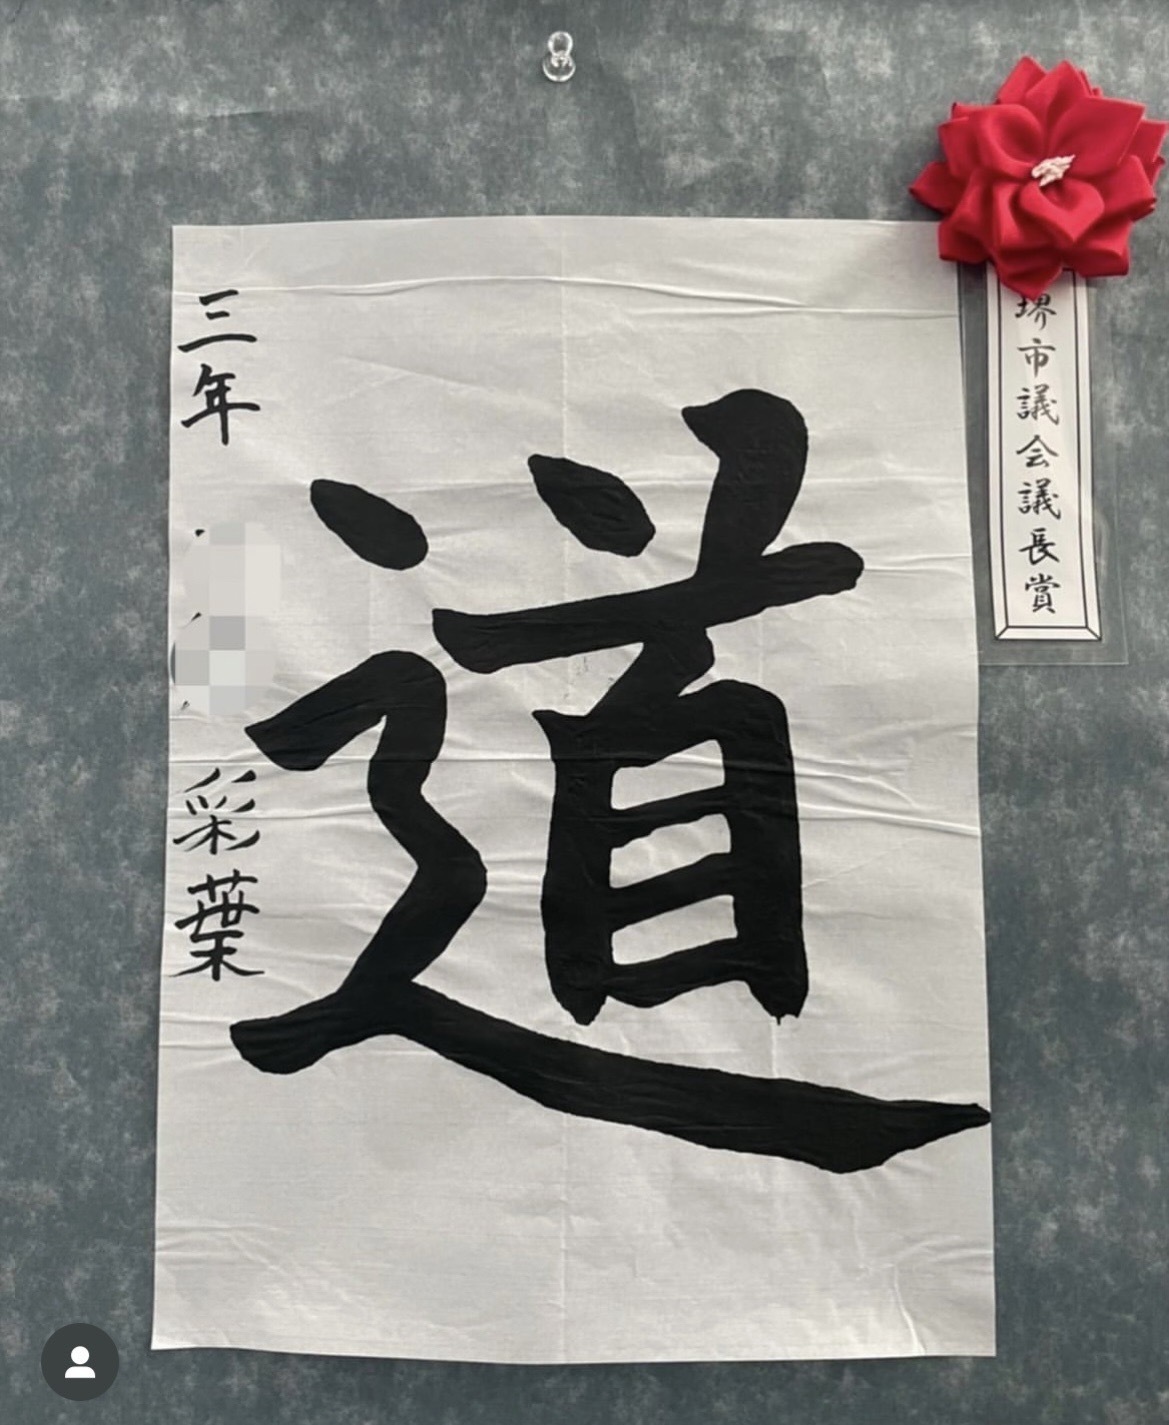 堺市議会議長賞
道
三年 彩葉